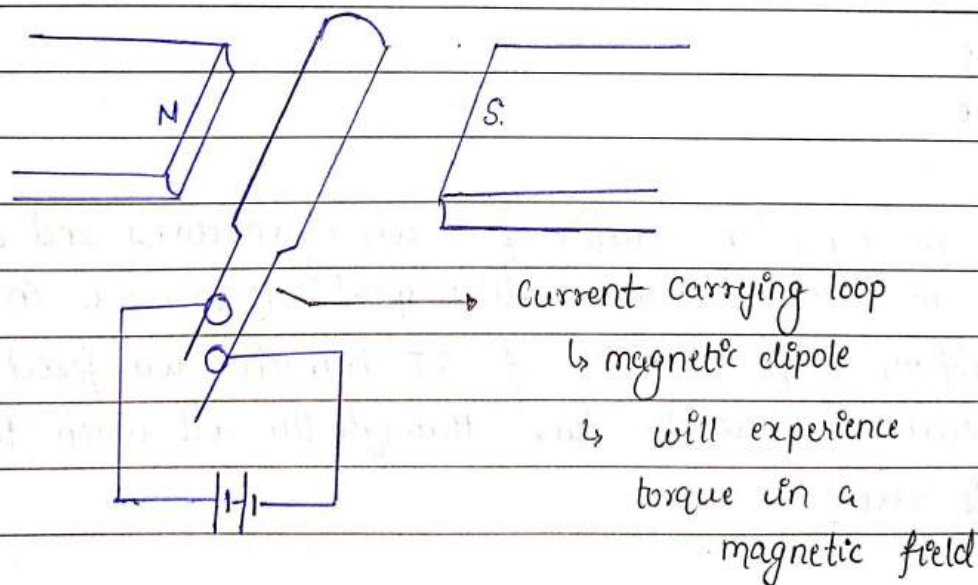 N
S.
Current Carrying loop
↳ magnetic dipole
↳ will experience
torque in a
magnetic field